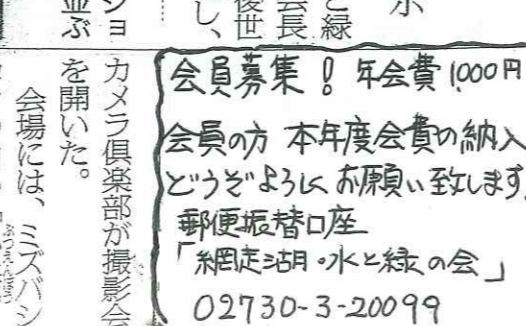 会員募集! 年会費1,000円
会員の方 本年度会費の納入
どうぞよろしくお願い致します
郵便振替口座
「網走湖・水と緑の会」
02730-3-20099
と緑
会長
後世
し、
ショ
並ぶ
カメラ倶楽部が撮影会
を開いた。
会場には、ミズバシ